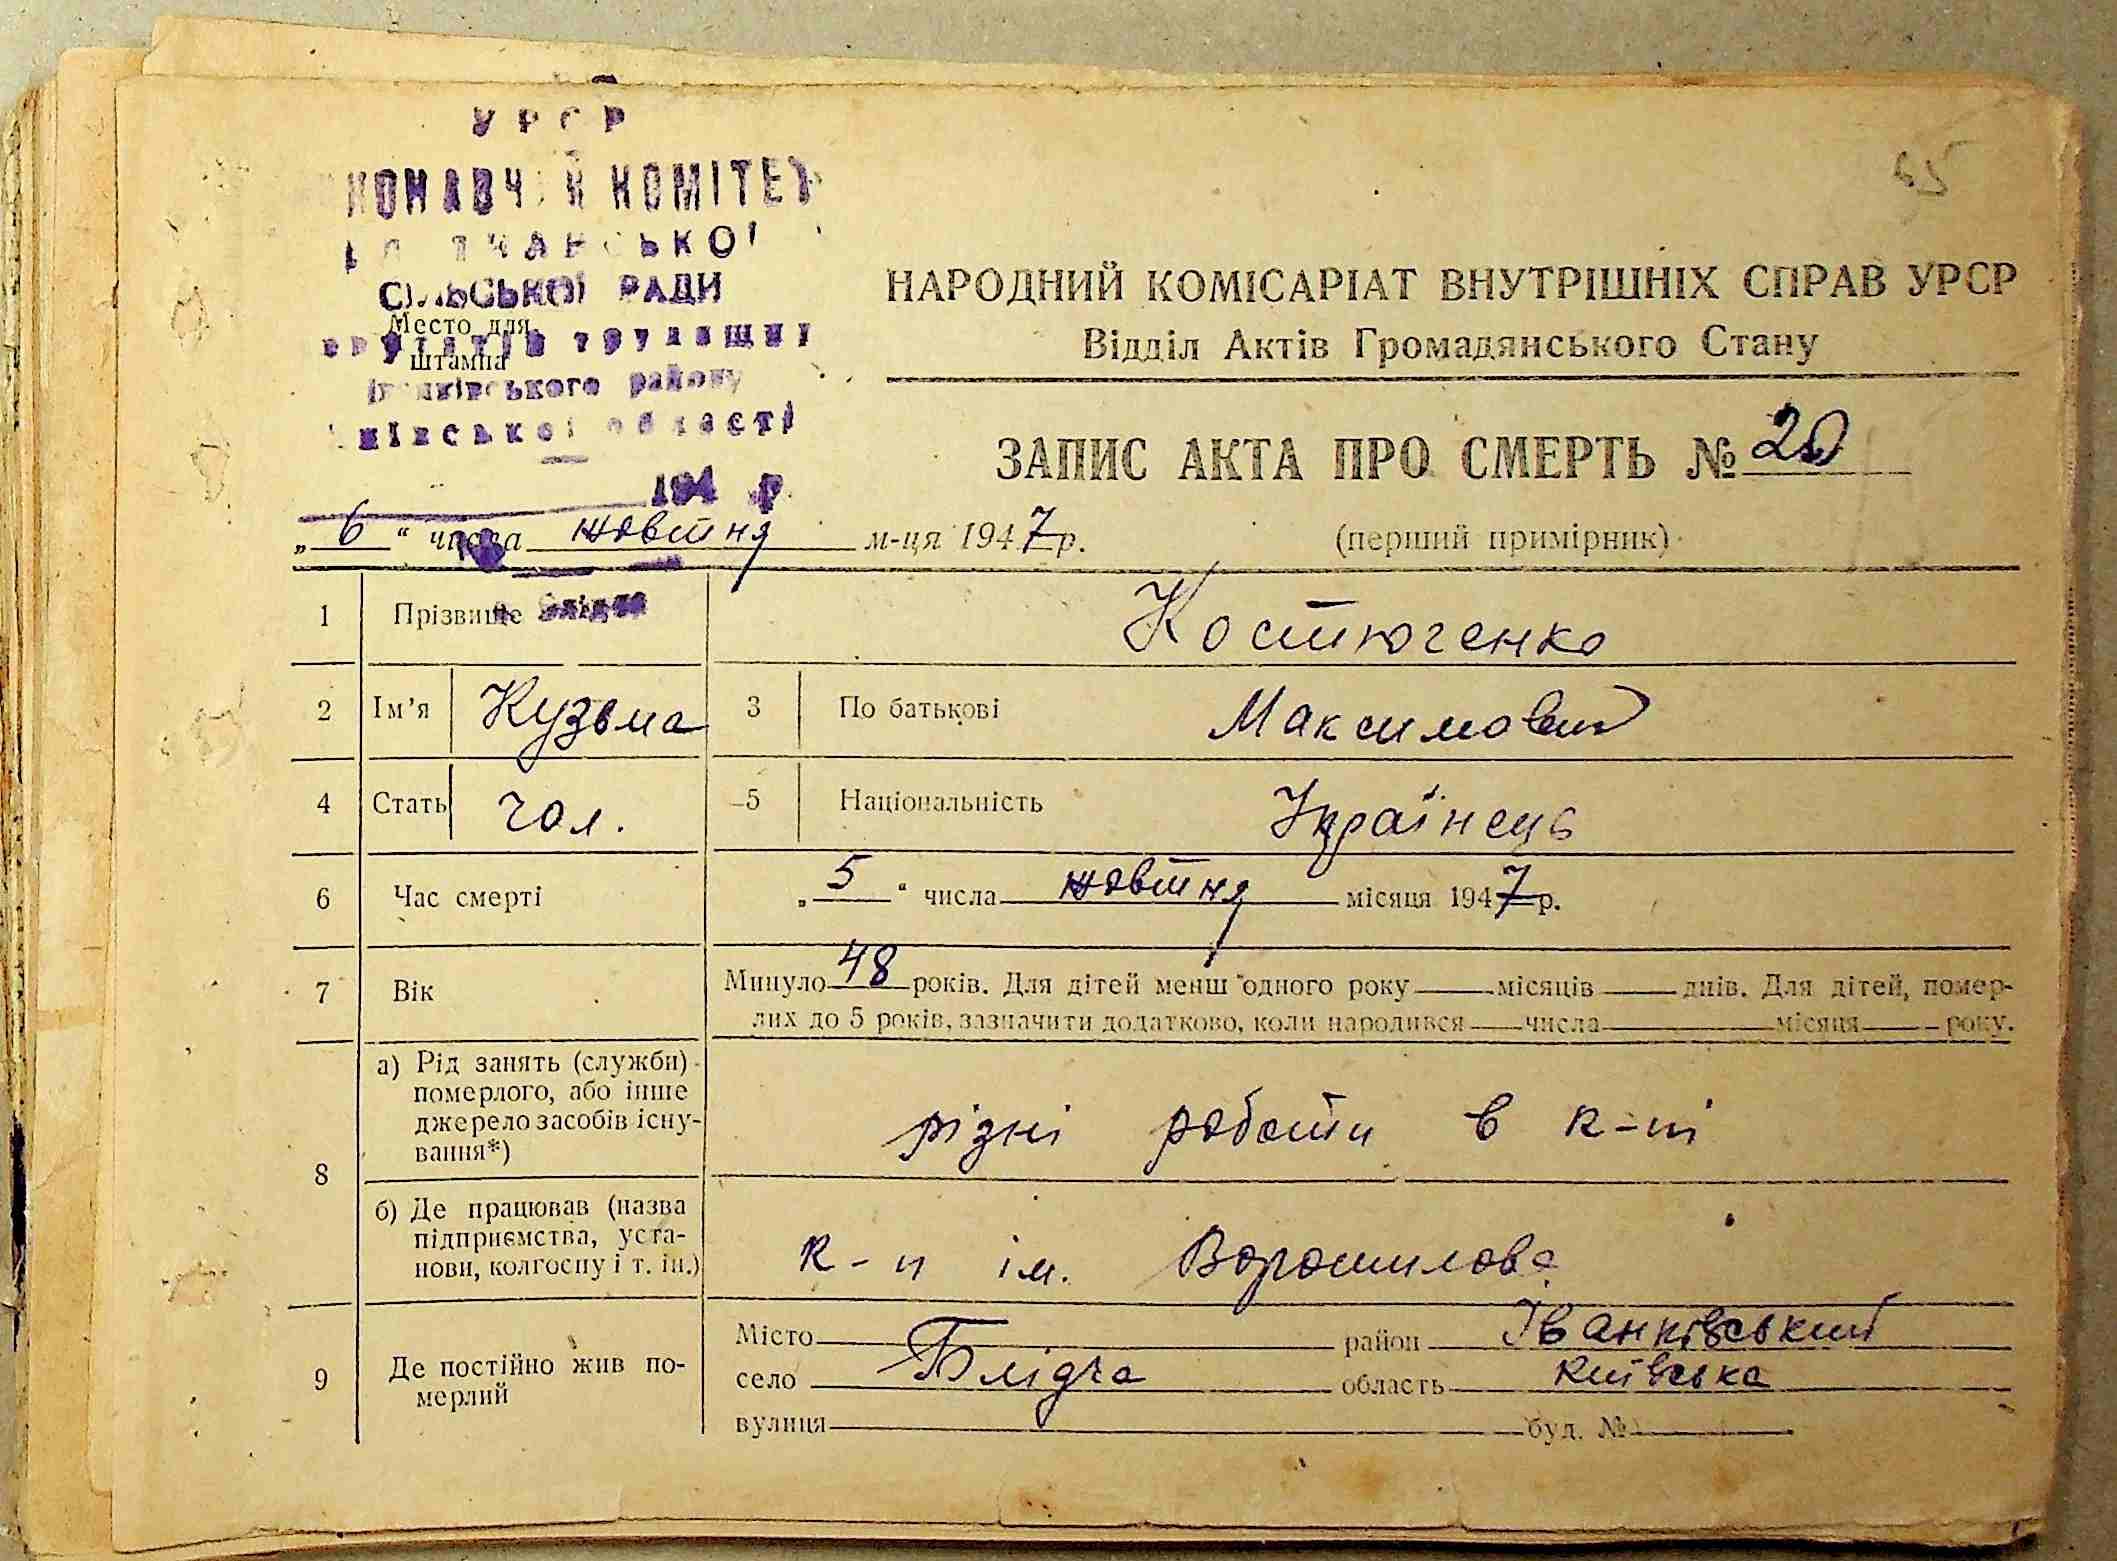 УРСР
СІЛЬСЬКОЇ РАДИ
Место для
штампа
району
області
194 р.
65
НАРОДНИЙ КОМІСАРІАТ ВНУТРІШНІХ СПРАВ УРСР
Відділ Актів Громадянського Стану
ЗАПИС АКТА ПРО СМЕРТЬ № 20
„ 6 “ числа жовтня м-ця 1947 р.
(перший примірник)
1 Прізвище Костюченко
2 Ім’я Кузьма 3 По батькові Максимович
4 Стать чол. 5 Національність Українець
6 Час смерті „ 5 “ числа жовтня місяця 1947 р.
7 Вік Минуло 48 років. Для дітей менш одного року місяців днів. Для дітей, помер-
лих до 5 років, зазначити додатково, коли народився числа місяця року.
8 а) Рід занять (служби)
померлого, або інше
джерело засобів існу-
вання*)
різні роботи в к-пі
б) Де працював (назва
підприємства, уста-
нови, колгоспу і т. ін.)
к-п ім. Ворошилова
9 Де постійно жив по-
мерлий
Місто район Іванківський
село Блідча область Київська
вулиця буд. №